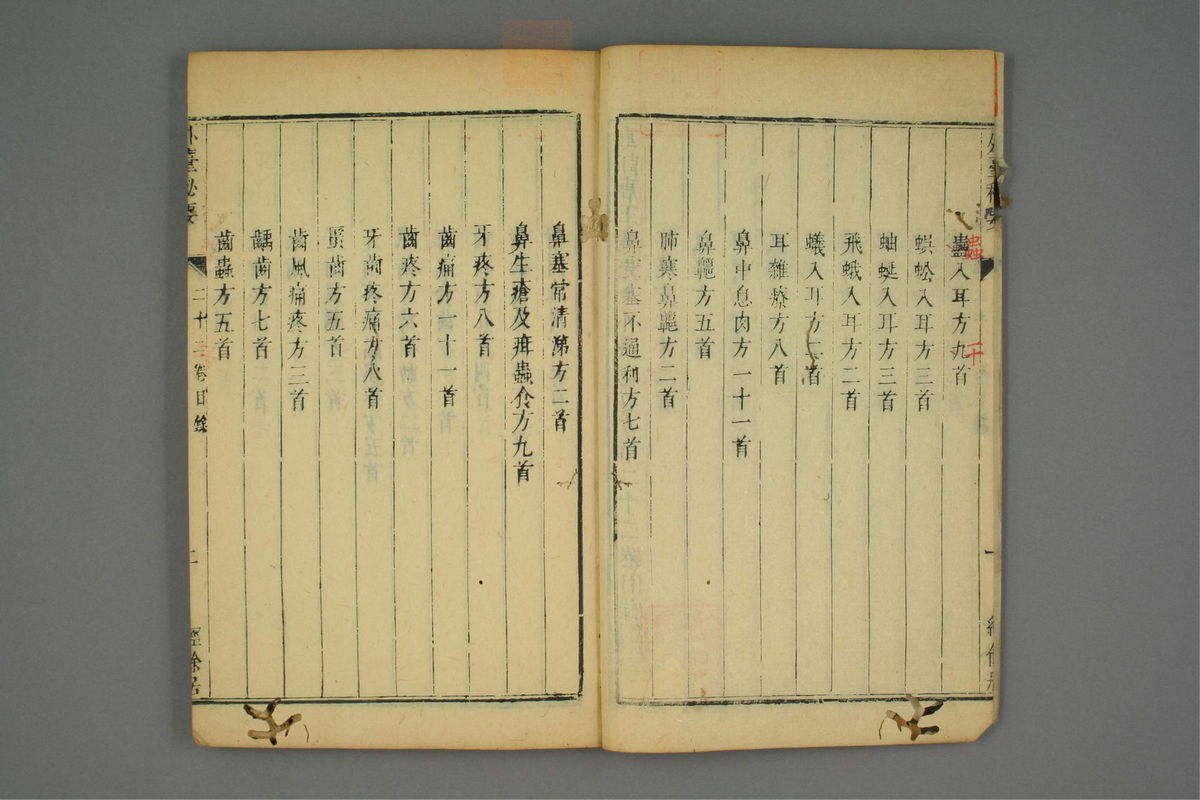 外臺秘要 一 經餘居
蠱入耳方九首
蟲
蜈蚣入耳方三首
蚰蜒入耳方三首
飛蛾入耳方二首
蟻入耳方二首
耳雜療方八首
鼻中息肉方一十一首
鼻鼽方五首
肺寒鼻鼽方二首
鼻窒塞不通利方七首
鼻塞常清涕方二首
鼻生瘡及疳蟲食方九首
牙疼方八首
齒痛方一十一首
齒疼方六首
牙齒疼痛方八首
齒方五首
齒風痛疼方三首
齲齒方七首
齒蟲方五首
外臺秘要 二十二卷目錄 二 經餘居